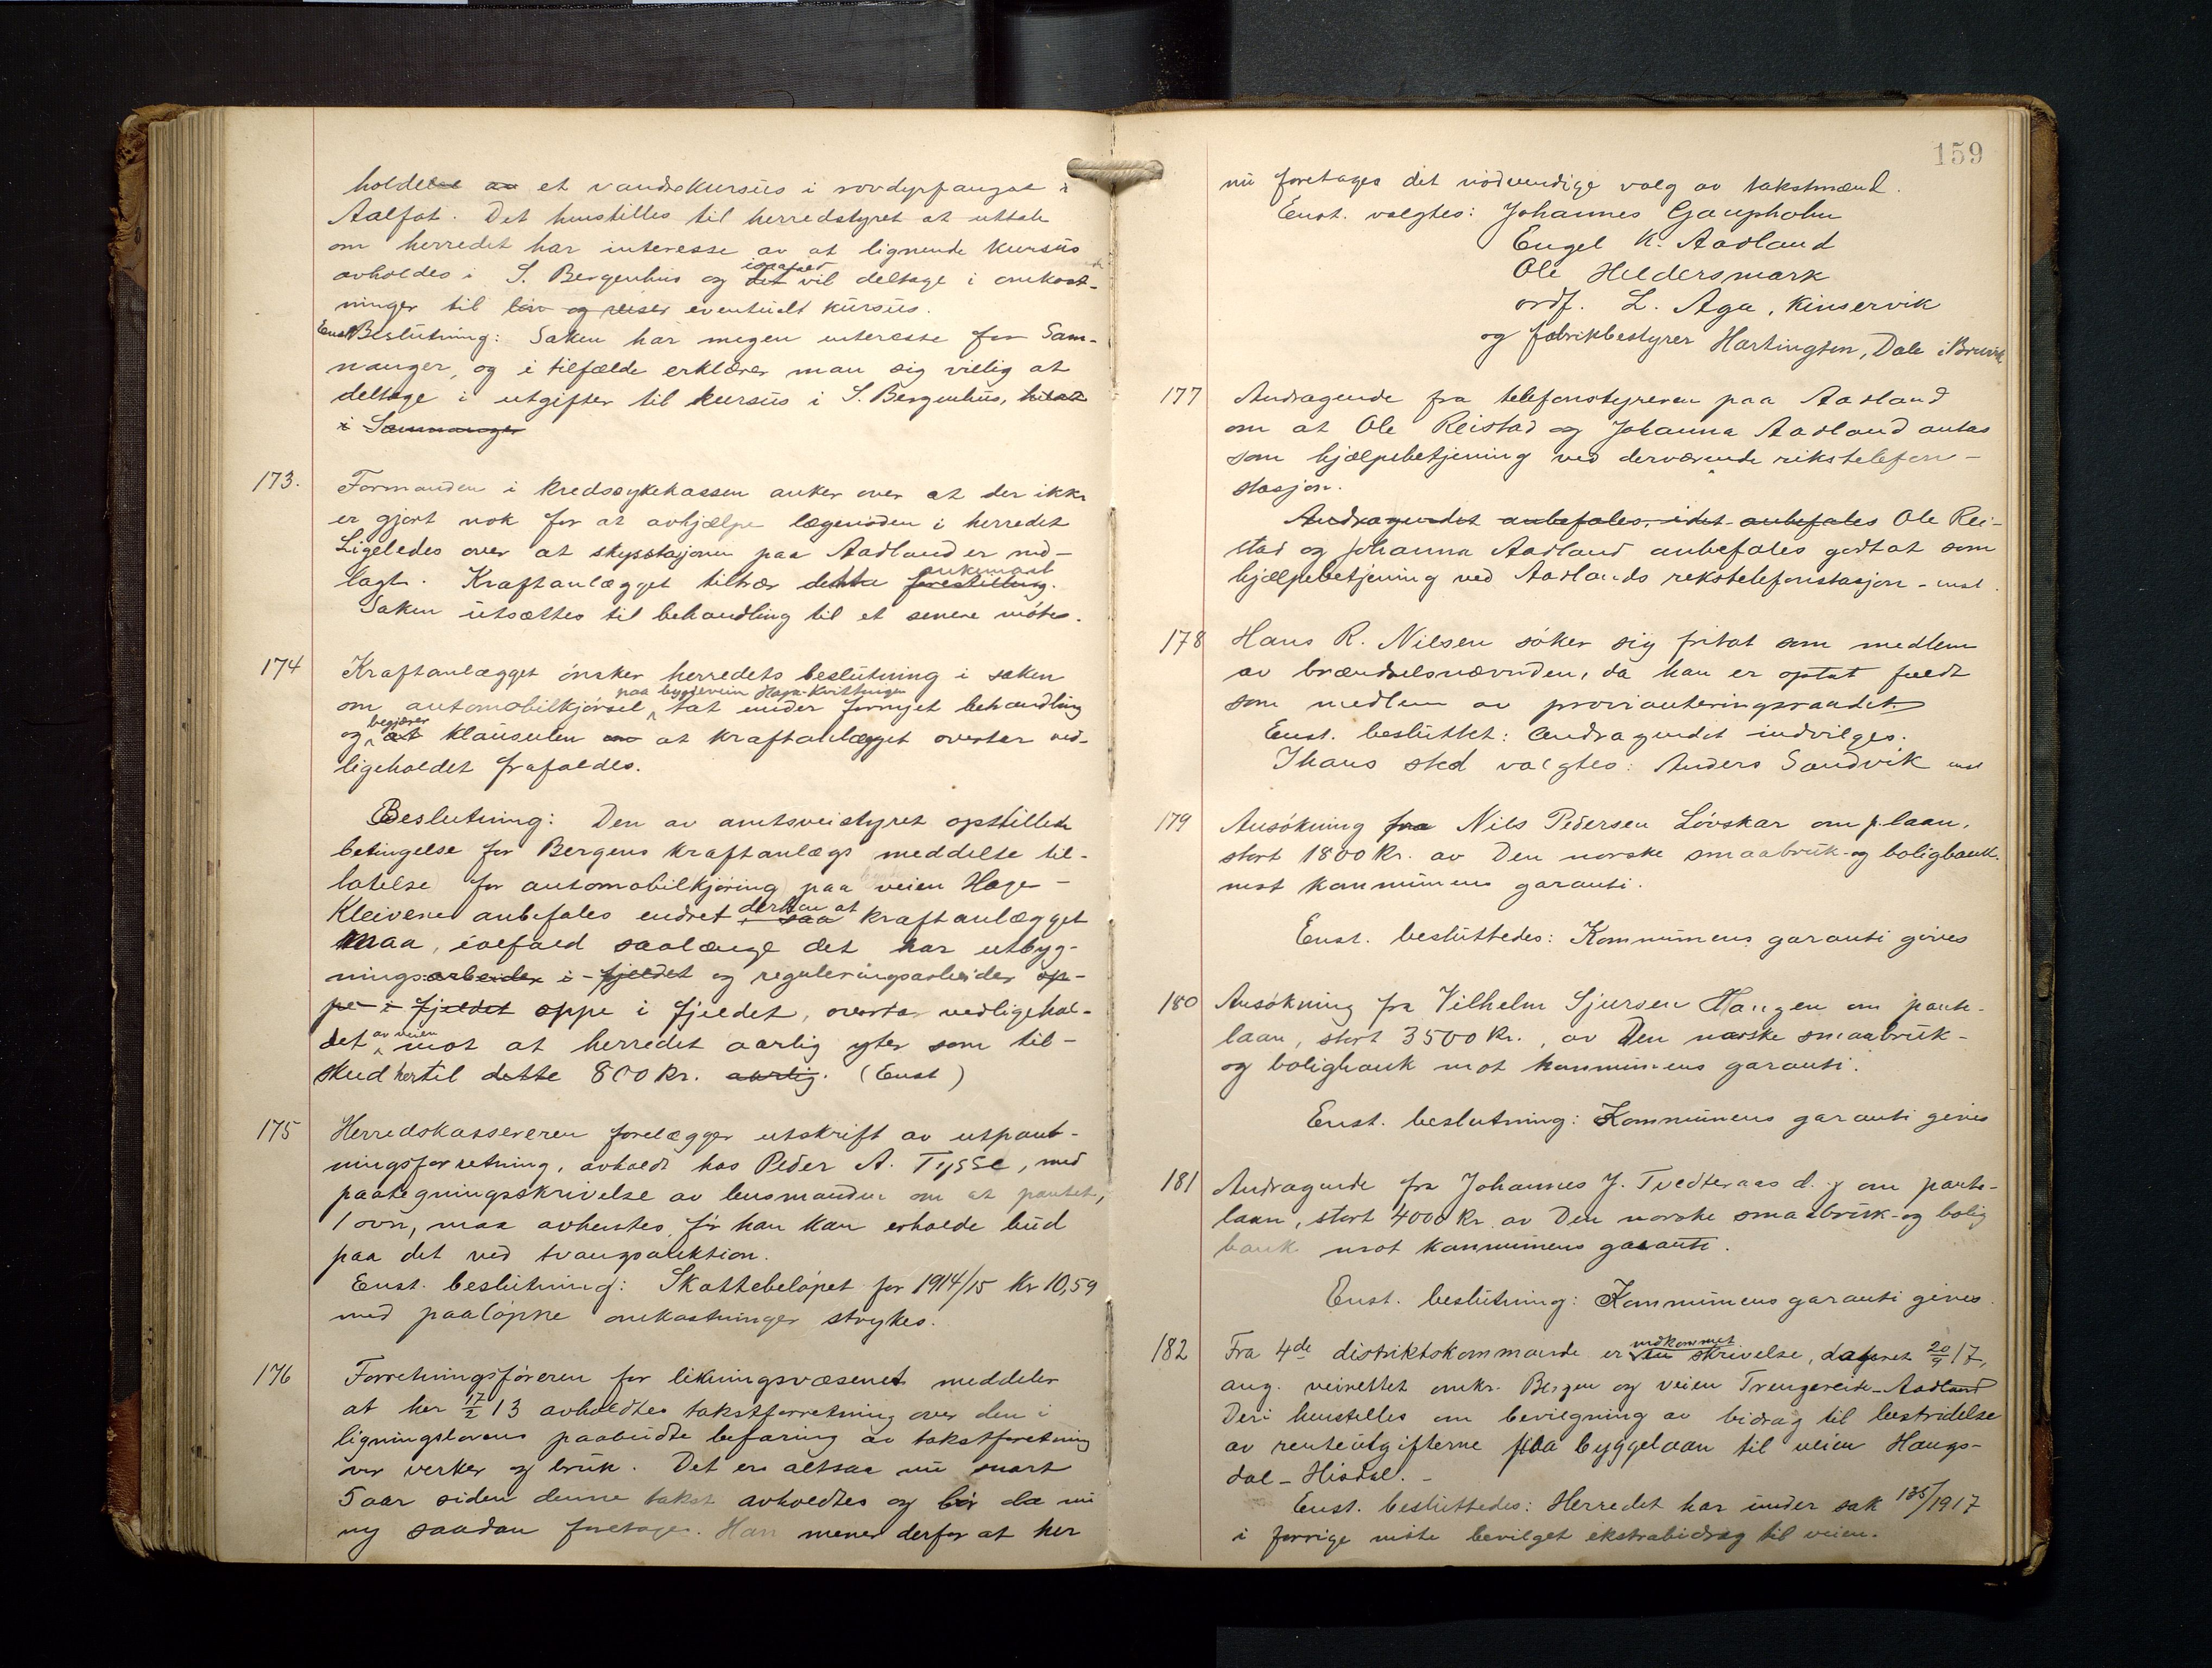 holdelse av et vandrekursus i rovdyrfangst i
Aalfot. Det henstilles til herredstyret at uttale
om herredet har interesse av at lignende kursus
avholdes i S. Bergenhus og isaafald det vil deltage i omkost-
ninger til løn og reiser eventuelt kursus.
Enst Beslutning: Saken har megen interesse for Sam-
nanger, og i tilfælde erklærer man sig villig at
deltage i utgifter til kursus i S. Bergenhus,
i Samnanger
173. Formanden i kredssykekassen anker over at der ikke
er gjort nok for at avhjælpe lægenøden i herredet
Ligeledes over at skysstasjonen paa Aadland er ned-
lagt. Kraftanlægget tiltrær dette ankemaal forestilling.
Saken utsættes til behandling til et senere møte.
174 Kraftanlægget ønsker herredets beslutning i saken
om automobilkjørsel paa bygdeveien Haga-Kvittingen tat under fornyet behandling
og begjærer at klausulen om at kraftanlægget overtar ved-
ligeholdet frafaldes.
Beslutning: Den av amtsveistyret opstillede
betingelse for Bergens kraftanlægs meddelte til-
latelse for automobilkjøring paa veien Haga-
Kleivene anbefales endret derhen at saa kraftanlægget
maa, ialfald saalænge det har utbyg-
ningsarbeider i fjeldet og reguleringsarbeider op-
pe i fjeldet oppe i fjeldet, overta vedligehol-
det av veien mot at herredet aarlig yter som til-
skud hertil dette 800 kr. aarlig. (Enst)
175 Herredskassereren forelægger utskrift av utpant-
ningsforretning, avholdt hos Peder A. Tysse, med
paategningsskrivelse av lensmanden om at pantet,
1 ovn, maa avhentes før han kan erholde bud
paa det ved tvangsauktion.
Enst. beslutning: Skattebeløpet for 1914/15 Kr 10,59
med paaløpne omkostninger strykes.
176 Forretningsføreren for likningsvæsenet meddeler
at her 17/2 13 avholdtes takstforretning over den i
ligningslovens paabudte befaring av takstforretning
over verker og bruk. Det er altsaa nu snart
5 aar siden denne takst avholdtes og bør da nu
ny saadan foretages. Han mener derfor at her
159
nu foretages det nødvendige valg av takstmænd.
Enst. valgtes: Johannes Gaupholm
Engel K. Aadland
Ole Hildersmark
ordf. L. Aga, Kinservik
og fabrikbestyrer Hartington, Dale i Bruvik
177 Andragende fra telefonstyreren paa Aadland
om at Ole Reistad og Johanna Aadland antas
som hjælpebetjening ved derværende rikstelefon-
stasjon.
Andragendet anbefales, idet anbefales Ole Rei-
stad og Johanna Aadland anbefales godtat som
hjælpebetjening ved Aadlands rikstelefonstasjon - enst.
178 Hans R. Nilsen søker sig fritat som medlem
av brændselsnævnden, da han er optat fuldt
som medlem av provianteringsraadet.
Enst. besluttet: Andragendet indvilges.
I hans sted valgtes: Anders Sandvik enst
179 Ansøkning fra Nils Pedersen Løvskar om p. laan,
stort 1800 Kr. av Den norske smaabruk- og boligbank.
mot kommunens garanti.
Enst. besluttedes: Kommunens garanti gives
180 Ansøkning fra Vilhelm Sjursen Haugen om pante-
laan, stort 3500 Kr., av Den norske smaabruk-
og boligbank mot kommunens garanti.
Enst. beslutning: Kommunens garanti gives
181 Andragende fra Johannes J. Tvedteraas d. y om pante-
laan, stort 4000 Kr. av Den norske smaabruk- og bolig
bank mot kommunens garanti.
Enst. beslutning: Kommunens garanti gives.
182 Fra 4de distriktskommando er indkommet en skrivelse, dateret 20/9 17,
ang. veinettet omkr. Bergen og veien Trengereide-Aadland
Deri henstilles om bevilgning av bidrag til bestridelse
av renteutgifterne paa byggelaan til veien Haugs-
dal-Hisdal.-
Enst. besluttedes: Herredet har under sak 135/1917
i forrige møte bevilget ekstrabidrag til veien.